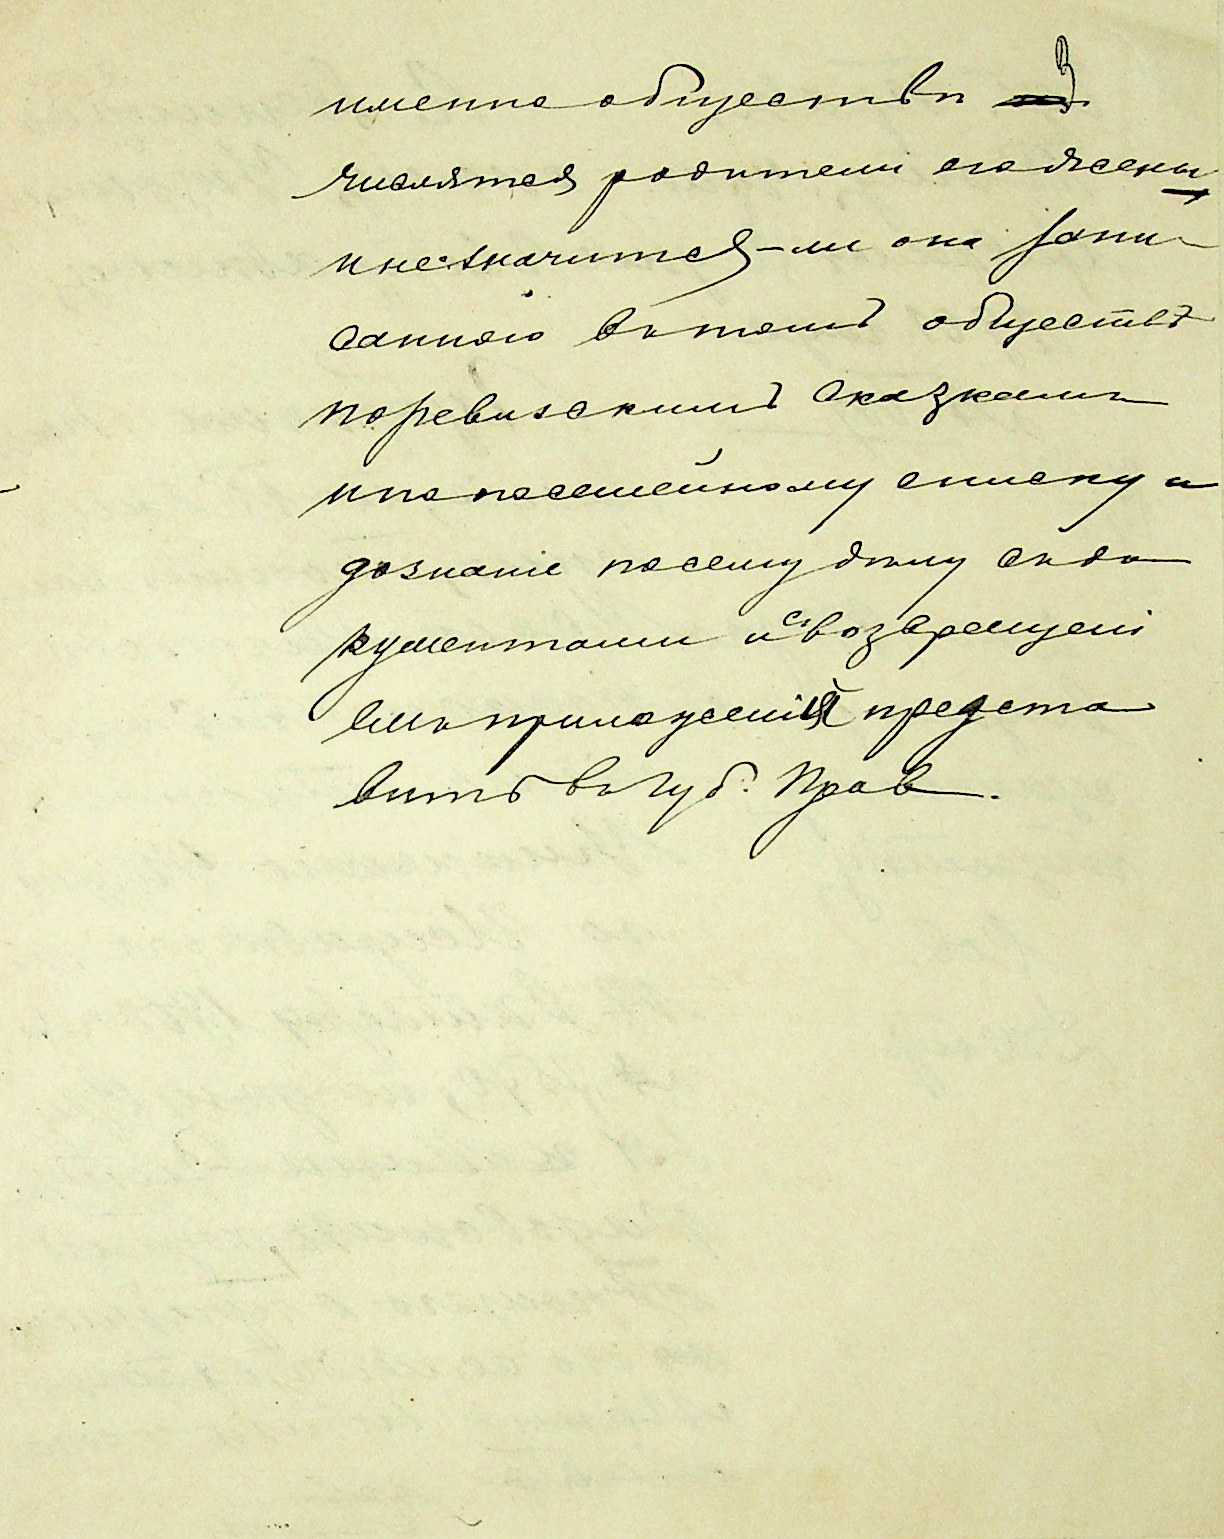 именно обществѣ
числятся родители его жены
и не значится-ли она запи-
санною въ томъ обществѣ
по ревизскимъ сказкамъ
и по посемейному списку и
дознаніе по сему дѣлу съ до
кументами и съ возвращені
емъ приложенія предста
вить въ Губ. Прав.